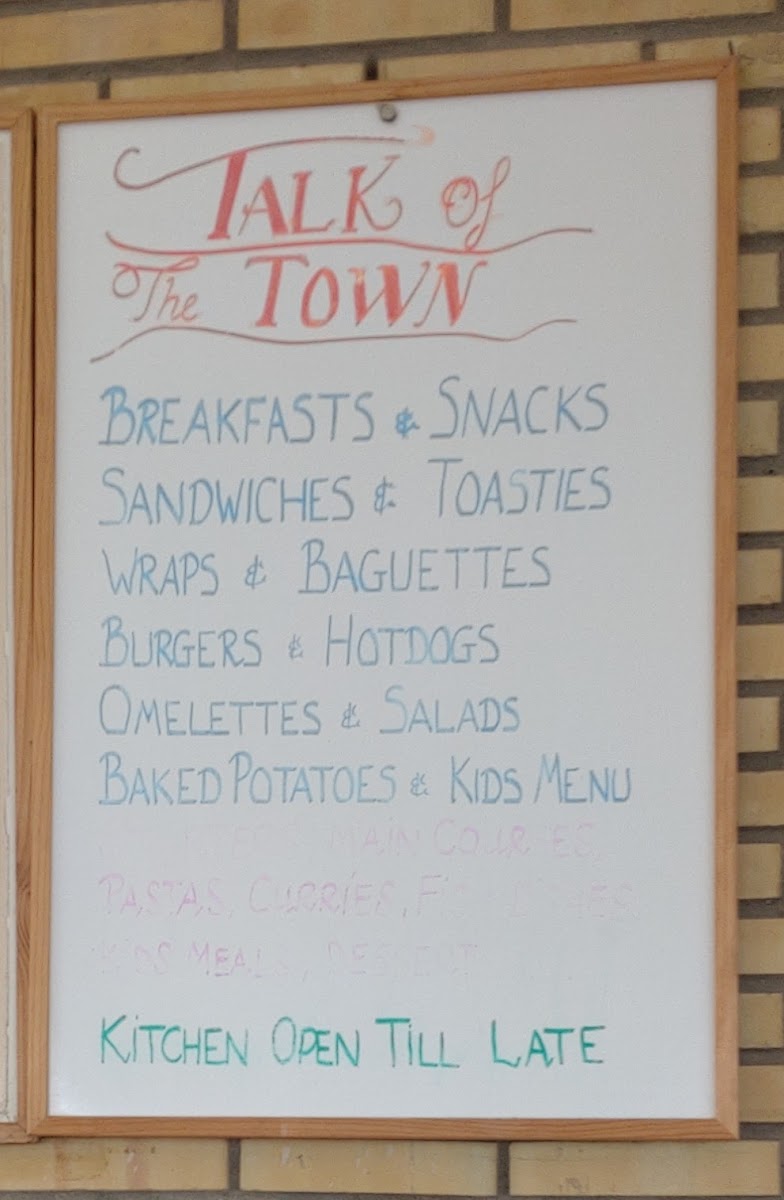 TALK Of
The TOWN
BREAKFASTS & SNACKS
SANDWICHES & TOASTIES
WRAPS & BAGUETTES
BURGERS & HOTDOGS
OMELETTES & SALADS
BAKED POTATOES & KIDS MENU
MAIN COURSES,
PASTAS, CURRIES,
KIDS MEALS, DESSERT
KITCHEN OPEN TILL LATE